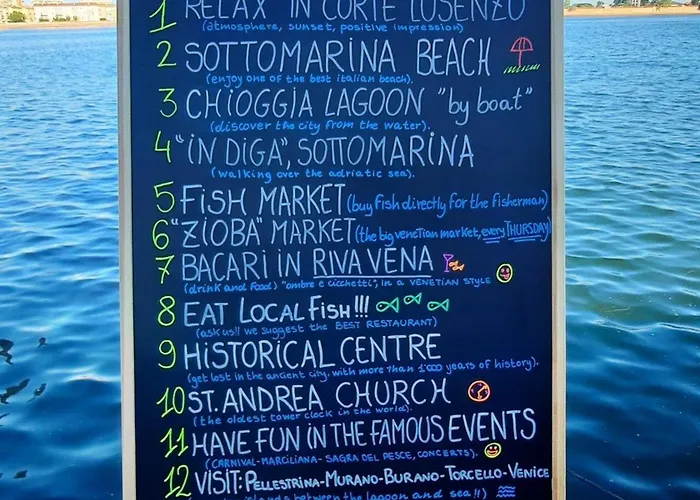 1 RELAX IN CORTE LUSENZO
(atmosphere, sunset, positive impression)
2 SOTTOMARINA BEACH
(enjoy one of the best italian beach).
3 CHIOGGIA LAGOON "by boat"
(discover the city from the water).
4 "IN DIGA", SOTTOMARINA
(walking over the adriatic sea).
5 FISH MARKET (buy fish directly for the fisherman)
6 "ZIOBA" MARKET (the big venetian market, every THURSDAY)
7 BACARI IN RIVA VENA
(drink and food) "ombre e cicchetti", in a VENETIAN STYLE
8 EAT LOCAL FISH!!!
(ask us!! we suggest the BEST RESTAURANT)
9 HISTORICAL CENTRE
(get lost in the ancient city, with more than 1000 years of history).
10 ST. ANDREA CHURCH
(the oldest tower clock in the world).
11 HAVE FUN IN THE FAMOUS EVENTS
(CARNIVAL-MARCILIANA- SAGRA DEL PESCE, CONCERTS).
12 VISIT: PELLESTRINA-MURANO-BURANO-TORCELLO-VENICE
islands between the lagoon and sea!!)